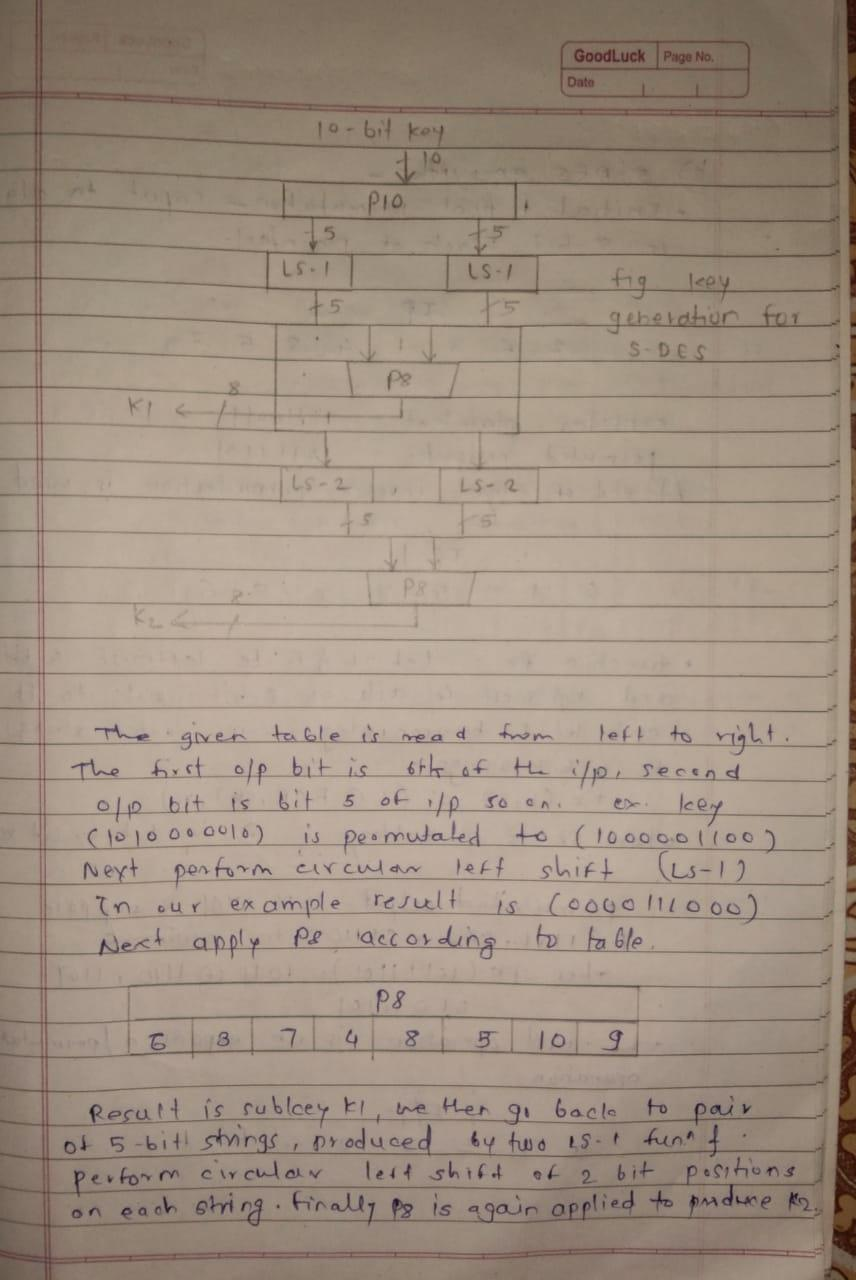 GoodLuck Page No.
Date
10-bit key
10
P10
5 5
LS-1 LS-1
fig key
5 5
generation for
S-DES
P8
8
K1
LS-2 LS-2
5 5
P8
8
K2
The given table is read from left to right.
The first o/p bit is 6th of the i/p, second
o/p bit is bit 5 of i/p so on. ex. key
(1010000010) is peomutated to (1000001100)
Next perform circular left shift (LS-1)
In our example result is (0000111000)
Next apply P8 according to table.
P8
6 3 7 4 8 5 10 9
Result is subkey K1, we then go back to pair
of 5-bit strings, produced by two LS-1 funⁿ f.
perform circular left shift of 2 bit positions
on each string. finally P8 is again applied to produce K2.